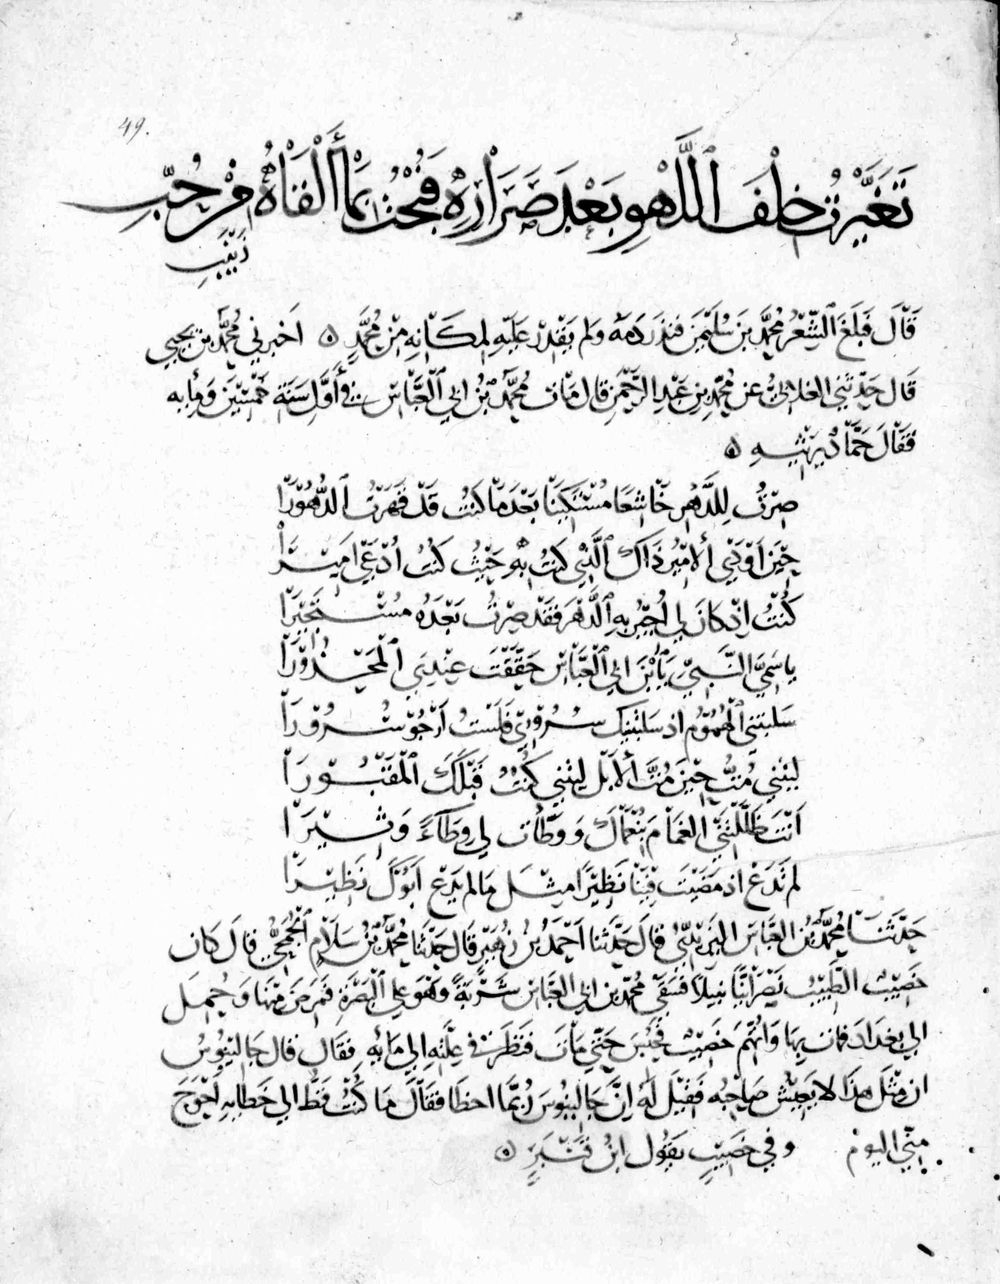 49.
تَغَيَّرْتُ خَلْفَ ٱللَّهْوِ بَعْدَ صَرَارِهِ فَبُحْتُ بِمَا أَلْقَاهُ مِنْ حُبِّ
زَيْنَبِ
قَالَ فَبَلَغَ الشِّعْرُ مُحَمَّدَ بْنَ سُلَيْمٰنَ فنذر دَمَهُ ولم يَقْدِرْ عَلَيْهِ لِمَكَانِهِ مِنْ مُحَمَّدٍ ۞ اَخبرني مُحَمَّد بن يحيى
قَال حَدَّثَنِي الغلابيُّ عن مُحَمَّدِ بنِ عَبْدِ الرَّحْمٰنِ قال مَات مُحَمَّدُ بْنُ ابي الْعَبَّاسِ في أَوَّلِ سَنَةِ خَمْسِيْنَ وَمِايه
فَقَالَ حَمَّادٌ يَرْثِيهِ ۞
صِرْتُ لِلدَّهْرِ خَاشِعًا مُسْتَكِيْنًا بَعْدَ مَا كُنْتُ قَدْ قَهَرْتُ الدُّهُوْرَا
حِيْنَ اَوْدَى ألامِيْرُ ذَاكَ الَّذِي كُنْتُ بِهِ حَيْثُ كُنْتُ اُدْعَى امَيْرَا
كُنْتُ اِذْ كَانَ لي اُجِيْرُ بِهِ الدَّهْرَ فَقَدْ صِرْتُ بَعْدَهُ مُسْتَجِيْرَا
يا سَمِيَّ النَّبِيِّ يَا بْنَ ابي الْعَبَّاسِ حَقَّقْتَ عِنْدِيَ الْمَحْذُوْرَا
سَلبتني الْهُمُوْمُ اذ سَلبَتْنِيكَ سُرُوْرِي فَلَسْتُ اَرْجُوْ سُرُوْرَا
لَيْتَنِي مُتُّ حِيْنَ مُتَّ أَلا بَلْ لَيْتَنِي كُنْتُ قَبْلَكَ الْمَقْبُوْرَا
اَنْتَ ظَلَّلْتَنِي الغمَامَ بِنُعْمَاكَ وَوَطَّأْتَ لي وِطَآءً وَثِيْرَا
لم تَدَعْ اذ مَضَيْتَ فِيْنَا نَظِيْرًا مِثْلَ مَا لم يَدَعْ اَبُوْكَ نَظِيْرَا
حَدَّثَنَا مُحَمَّدُ بْنُ العَبَّاسِ اليَزيديّ قالَ حَدَّثنا اَحْمَدُ بنُ زُهَيْرٍ قال حَدَّثنا مُحَمَّدُ بْنُ سَلَّامٍ الْجُمَحِيُّ قالَ كان
خَصِيْبٌ الطَّبِيْبُ نَصْرَانِيًّا نبيلًا فَسَقَى مُحَمَّد بن ابي العَبَّاسِ شَرْبَةً وَهُوَ على البَصْرَةِ فَمَرِضَ مِنْهَا وَحُمِلَ
الى بغدَادَ فمات بِهَا وَاتُّهِمَ خَصِيْبٌ فَحُبِسَ حَتّى مَاتَ فَنَظَرَ في عِلَّتِهِ الى مَايه فقَال قال جَالينُوسُ
ان مِثْلَ هذا لا يَعِيْشُ صَاحِبُه فَقِيْلَ لَهُ اِنَّ جَالينُوسَ رُبَّمَا اخطا فقَالَ مَا كُنْتُ قَطُّ الى خَطَايهِ اَحْوَجَ
مِنِّي اليَوْمَ وفي خَصِيْبٍ يَقُوْل ابْن قَنْبَرٍ ۞